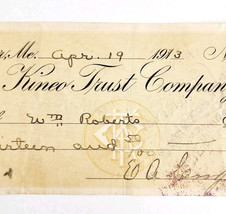 Me. Apr. 19 1913 N
Kineo Trust Company
Wm Roberts
rteen and
E A